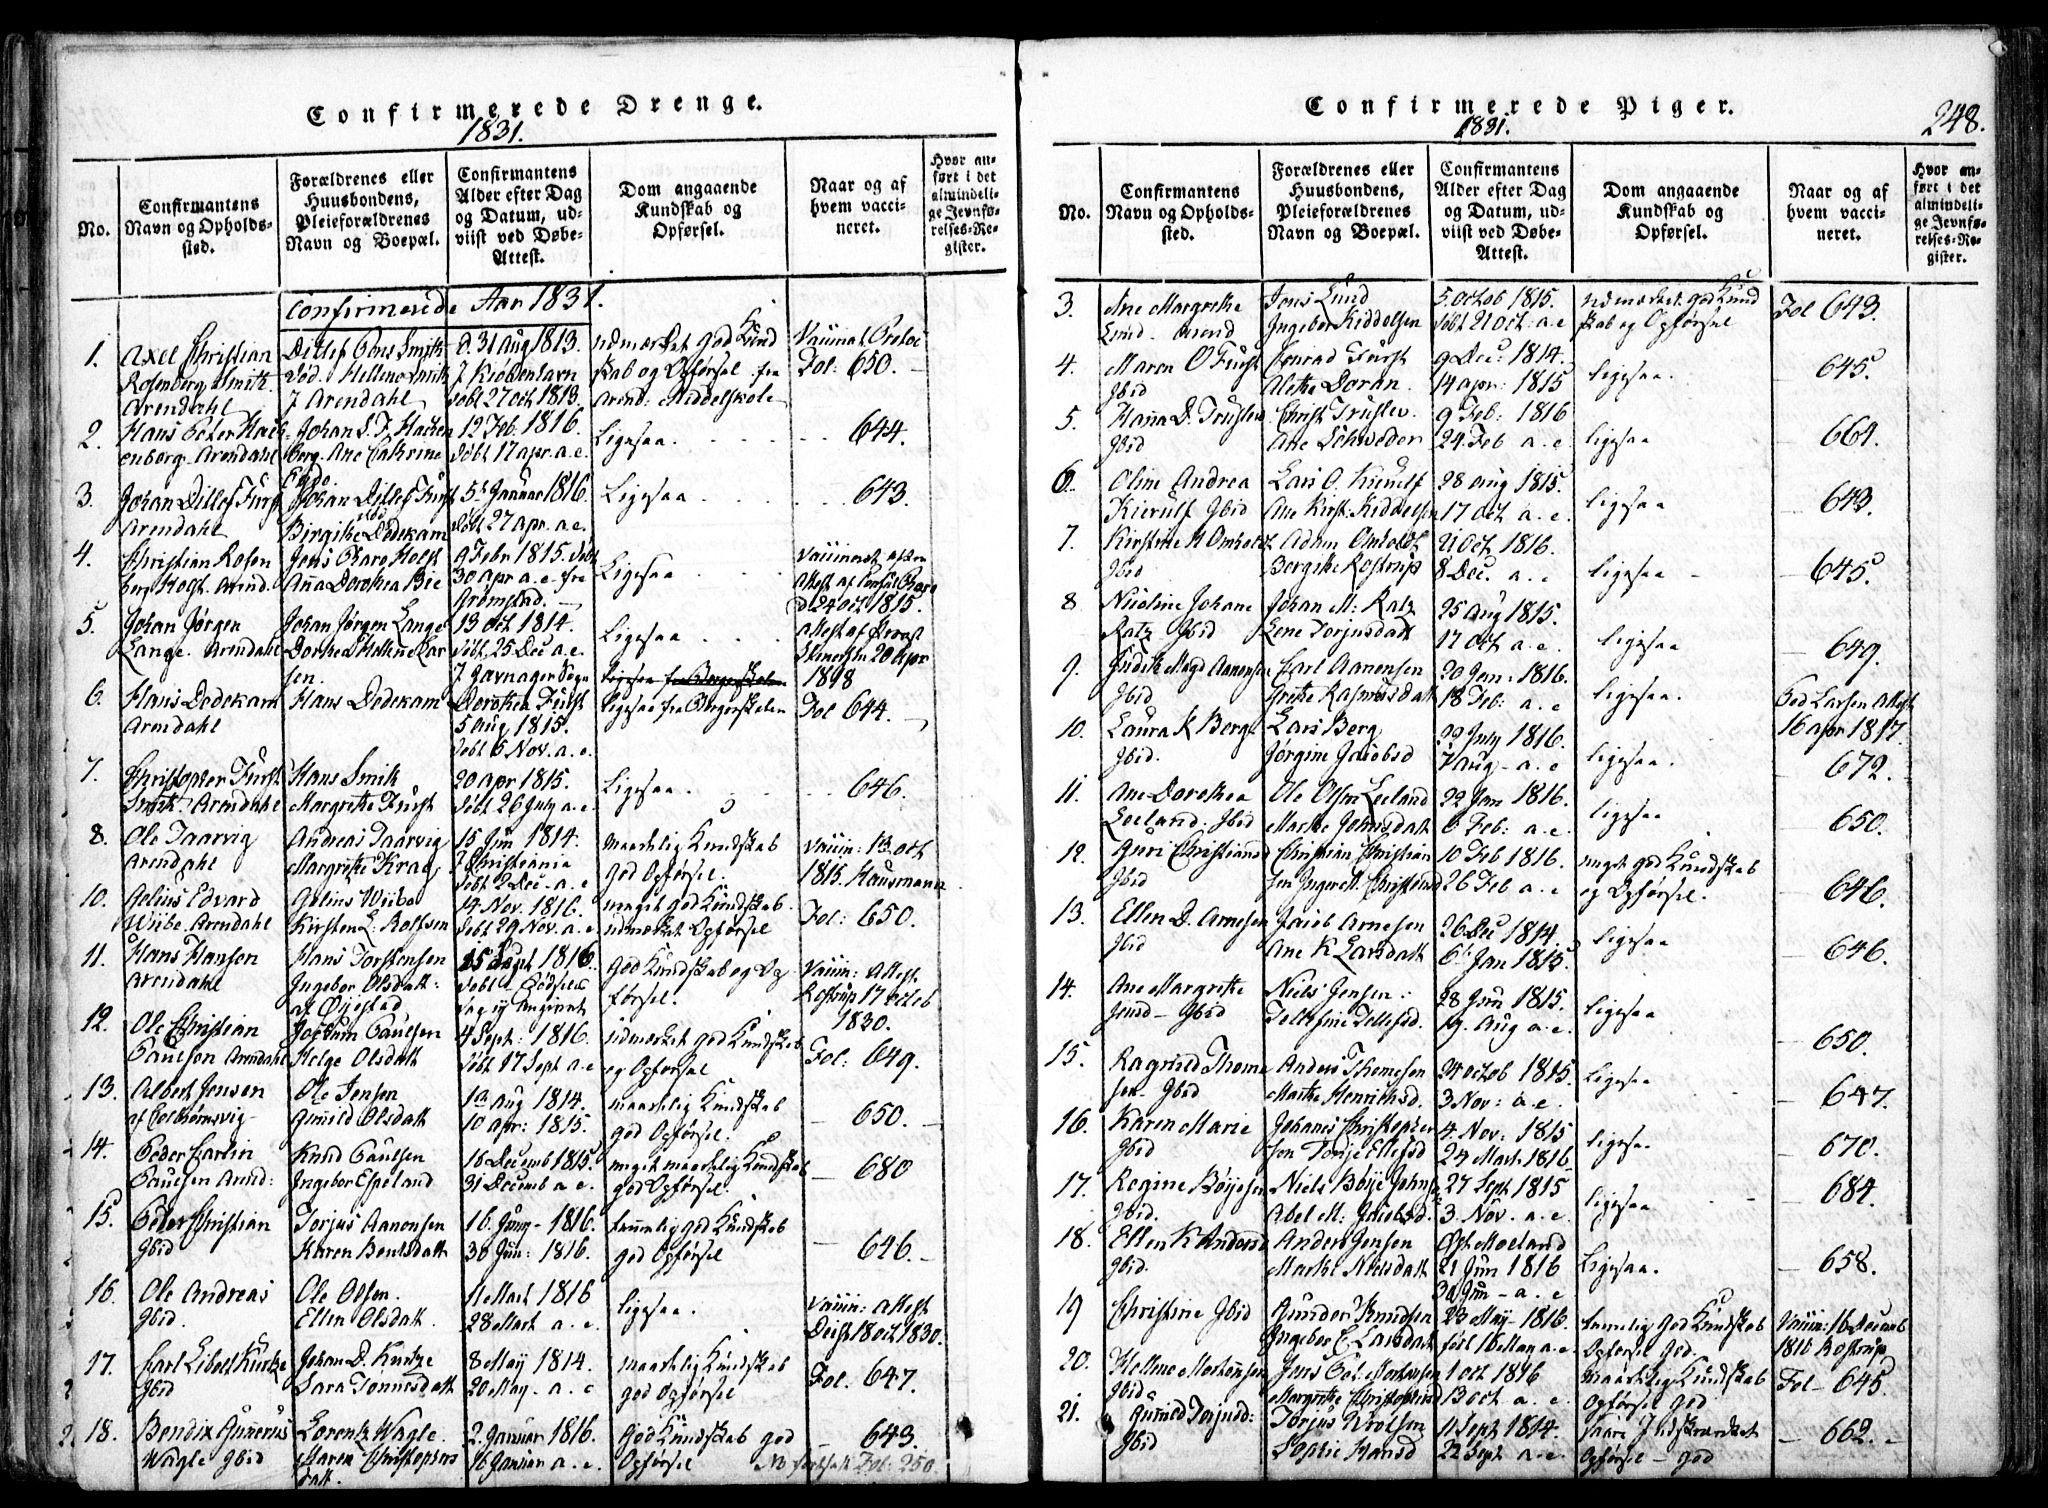 Confirmerede Drenge.
1831.
No.
Confirmantens Navn og Opholdssted.
Forældrenes eller Huusbondens, Pleieforældrenes Navn og Boepæl.
Confirmantens Alder efter Dag og Datum, udviist ved Døbe-Attest.
Dom angaaende Kundskab og Opførsel.
Naar og af hvem vaccineret.
Hvor anført i det almindelige Jevnførelses-Register.
Confirmerede Aar 1831.
1. Axel Christian Ditlef Smith d. 31 Aug 1813. udmærket god Kund
Rosenberg Smith Kiøbenhavn skab og Opførsel fra Fol: 650.
Arendahl J Arendahl døbt 27 oct 1813. Arend: Middelskole
2. Hans Peter Johan 12 Feb. 1816. Ligesaa. 644.
Arendahl Ane Cathrine døbt 17 apr. a. e.
3. Johan Ditlef Fürst Johan Ditlef Fürst 5 Januar 1816. Ligesaa 643.
Arendahl Birgithe Dedekam døbt 27 apr. a. e.
4. Christian Rosen Jens Holst 9 Febr 1815. døbt Ligesaa
berg Holst. Arend. Anna Dorothea Bie 30 apr a. e. fra Attest af
Grømstad. d 24 oct 1815.
5. Johan Jørgen Johan Jørgen Lange 13 oct 1814. Ligesaa Attest af
Lange. Arendahl døbt 25 Dec a. e. 20 Apr
sen. 1818
6. Hans Dedekam Hans Dedekam Dorothea Fürst Ligesaa fra Borgerskolen Fol 644.
Arendahl 5 Aug 1815.
døbt 6 Nov. a. e.
7. Christopher Fürst Hans Smith 20 apr 1815. Ligesaa. 646.
Smith Arendahl Margrethe Fürst døbt 26 July a. e.
8. Ole Taarvig Andreas Taarvig 15 Jun 1814. maadelig Kundskab Vaccin: 13 oct
Arendahl Margrethe Krag J Christiania god Opførsel. 1815. Hausmann
døbt 2 Dec. a. e
10. Gelius Edvard Gelius Wiibe 14 Nov. 1816. meget god Kundskab. Fol: 650.
Wiibe. Arendahl Kirsten L: Rolfsen døbt 29 Nov. a. e udmærket Opførsel
11. Hans Hansen Hans Torstensen 15 Sept 1816 god Kundskab og Op Vaccin: Attest
Arendahl Ingebor Olsdatt: døbt Fødsels førsel. Rostrup 17 octob
af Øyestad dag ey Angivet 1830.
12. Ole Christian Jochum Paulsen 4 Sept: 1816. udmærket god Kundskab Fol: 649.
Paulsen Arendahl Helge Olsdatt døbt 17 Sept a. e og Opførsel
13. Albert Jensen Ole Jensen Aug 1814. maadelig Kundskab 650.
af Colbiørnsvig Gunnild Olsdatt 10 apr: 1815. god Opførsel.
14. Peder Carlin Knud Paulsen 16 Decemb 1815. meget maadelig Kundskab 680
Paulsen Arend: Ingebor Espeland 31 Decemb a. e. god Opførsel.
15. Peder Christian Torjus Aanonsen 16. Juny 1816. temmelig god Kundskab 646.
Ibid Karen Bentsdatt 30 Jun: 1816. god Opførsel
16. Ole Andreas Ole Olsen. 11 Mart 1816 Ligesaa. Vaccin: Attest
Ibid. Ellen Olsdatt. 28 Mart a. e. Deist 18 oct 1830.
17. Carl Kuntze Johan D. Kuntze 8 May 1814. maadelig Kundskab Fol. 647.
Ibid Sara Tønnesdatt 20 May. a. e god Opførsel
18. Bendix Gunerius Lorentz Wagle. 2. Januar 1816. God Kundskab god 643.
Wagle Ibid Maren Christophers 16 Januar a. e. Opførsel
datt. Fol: 250.
Confirmerede Piger.
1831.
248.
No.
Confirmantens Navn og Opholdssted.
Forældrenes eller Huusbondens, Pleieforældrenes Navn og Boepæl.
Confirmantens Alder efter Dag og Datum, udviist ved Døbe-Attest.
Dom angaaende Kundskab og Opførsel.
Naar og af hvem vaccineret.
Hvor anført i det almindelige Jevnførelses-Register.
3. Ane Margrethe Jens Lund 5 octob 1815. udmærket god Kund Fol 643.
Lund. Arend Ingebor Kiddelsen døbt 21 Oct. a. e skab og Opførsel
4. Maren O Fürst Conrad Fürst 9 Dec: 1814. ligesaa. 645.
Ibid Alethe Doran. 14 apr: 1815
5. Hanna D. Truslev Christ Truslev. 9 Feb: 1816 ligesaa 664.
Ibid Ane Schrøder 24 Feb a. e.
6. Oline Andrea Lars O. Kierulf 28 aug 1815. ligesaa 643.
Kierulf Ibid Ane Kirst. Kiddelsen 17 oct a. e.
7. Kirstine M Omholt Adam Omholt 21 Oct. 1816. ligesaa 645.
Ibid Bergithe Rostrup 8 Dec. a. e
8 Nicoline Johane Johan M: Ratz 25 Aug 1815. ligesaa 649.
Ratz Ibid Lene Torjusdatt 17 Oct a. e.
9. Magd Aanonsen Carl Aanonsen 20 Jan: 1816. ligesaa. Larsen Attest
Ibid Grethe Rasmusdatt 18 Feb: a. e 16 apr 1817.
10. Laura K Berg Lars Berg 22 July 1816. ligesaa. 672.
Ibid. Jørgine Jacobsd 7 Aug. a. e
11. Ane Dorothea Ole Olsen Loeland 22 Jan 1816. ligesaa 650.
Loeland. Ibid Marthe Johnsdatt 6 Feb: a. e.
12. Guri Christiansd Christian Christian 10 Feb 1816. meget god Kundskab 646.
Ibid sen Inger M. 26 Feb a. e og Opførsel.
13. Ellen D. Arnesen Jacob Arnesen 26 Dec 1814 ligesaa 646.
Ibid Ane K Larsdatt 6 Jan 1815.
14. Ane Margrethe Niels Jensen. 28 Jun 1815. ligesaa 650.
Jensd. Ibid Tellefine Tellefsd. 19. Aug a. e.
15. Ragnild Thome Anders Thomesen 24 octob 1815. ligesaa 647.
sen. Ibid Marthe Henrichsd. 3 Nov: a. e.
16. Karen Marie Johanes Christopher 4. Nov: 1815 ligesaa. 670.
Ibid sen Tonje Ellefsd 24 Mart. 1816
17. Regine Bøyesen Niels Bøye Johns 27 Sept 1815 ligesaa 684.
Ibid. Abel M: Jacobsd. 3. Nov. a. e.
18. Ellen K Andersd Anders Jensen Øst Moeland Ligesaa. 658.
Ibid. Marthe Nielsdatt 21 Jun 1816
30 Jun a. e
19 Christine Ibid Gunder Knudsen 23 May 1816. temmelig god Kundskab Vaccin: 16 Decemb
Ingebor E Larsdatt føbt 16 May a. e. Opførsel God. 1816 Rostrup
20. Hellene Mortensen Jens Mortensen 1 oct 1816 maadelig Kundskab Fol 645
Ibid Margrethe Christophersd 13 oct a. e. Opførsel God
21. Gunnild Torjusd: Torjus 11 Sept 1814. 662.
Ibid Sophie Hansd 22 Sept a. e. Opførsel god